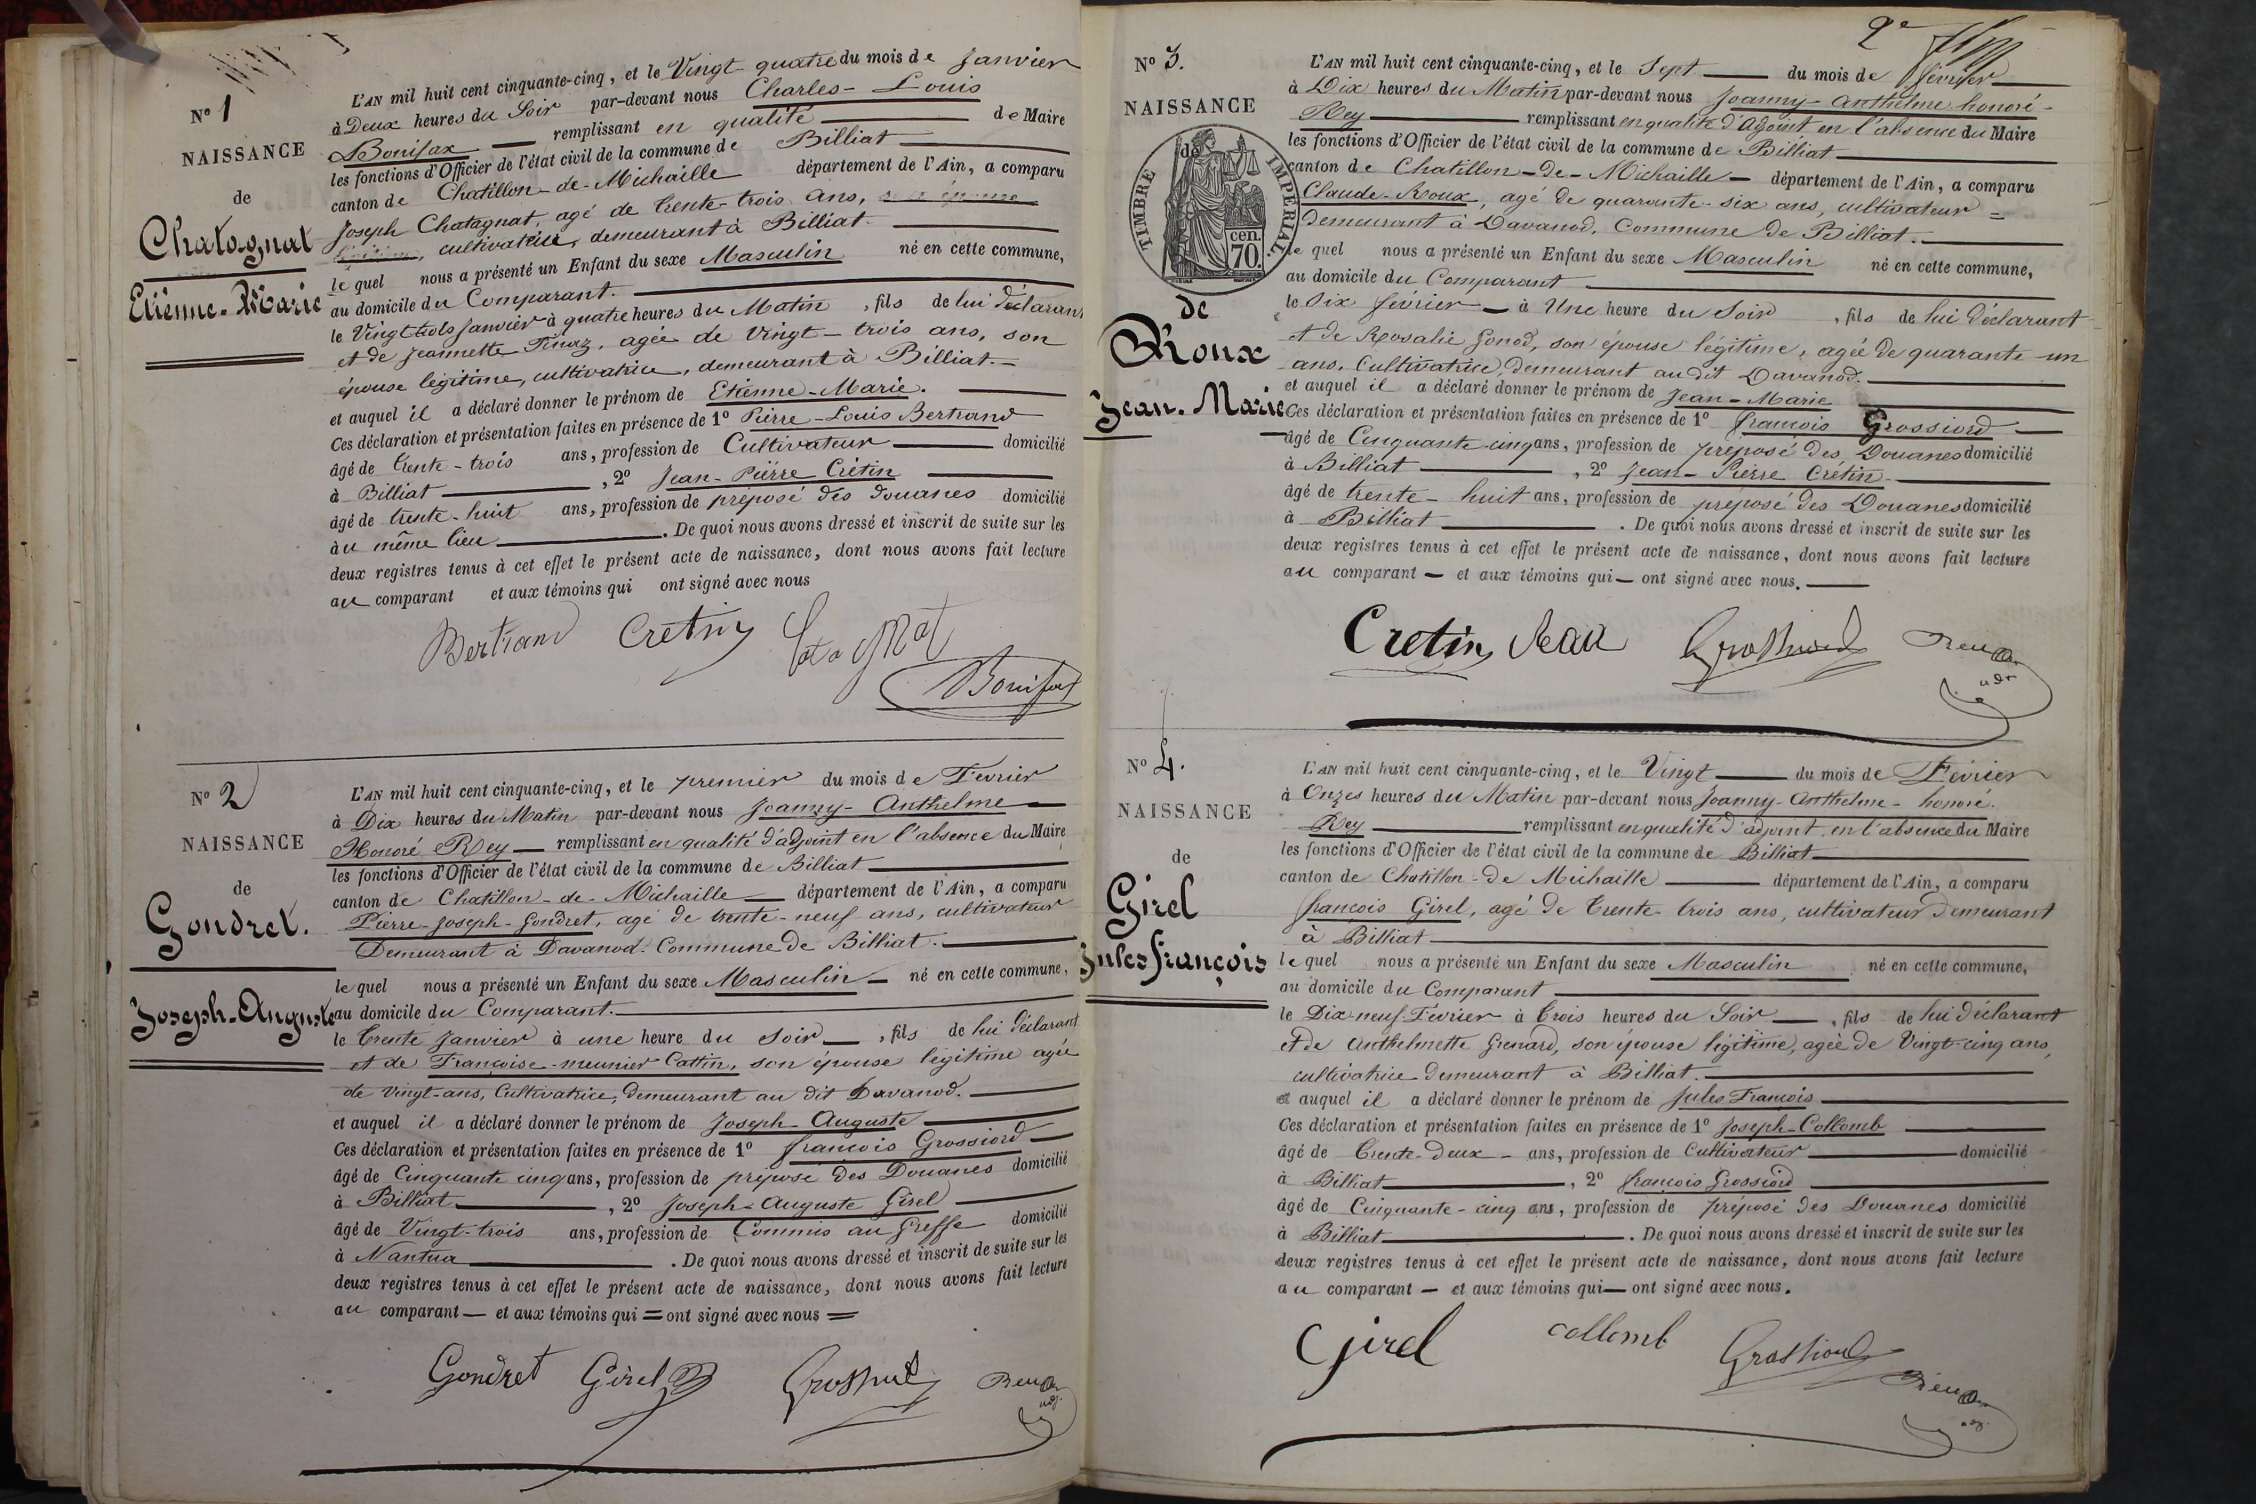 N° 1
NAISSANCE
de
Chatagnat
Etienne-Marie
L'AN mil huit cent cinquante-cinq, et le Vingt quatre du mois de Janvier
à Deux heures du Soir par-devant nous Charles-Louis
Bonifax remplissant en qualité de Maire
les fonctions d'Officier de l'état civil de la commune de Billiat
canton de Chatillon-de-Michaille département de l'Ain, a comparu
Joseph Chatagnat, agé de trente-trois ans,
cultivateur, demeurant à Billiat.
le quel nous a présenté un Enfant du sexe Masculin né en cette commune,
au domicile du Comparant.
le Vingt trois Janvier à quatre heures du Matin, fils de lui déclarant
et de Jeannette Tinaz, agée de Vingt-trois ans, son
épouse légitime, cultivatrice, demeurant à Billiat.
et auquel il a déclaré donner le prénom de Etienne-Marie.
Ces déclaration et présentation faites en présence de 1° Pierre-Louis Bertrand
âgé de trente-trois ans, profession de Cultivateur domicilié
à Billiat, 2° Jean-Pierre Crétin
âgé de trente-huit ans, profession de préposé des douanes domicilié
au même lieu. De quoi nous avons dressé et inscrit de suite sur les
deux registres tenus à cet effet le présent acte de naissance, dont nous avons fait lecture
au comparant et aux témoins qui ont signé avec nous
Bertrand Cretin Chatagnat
Bonifax
N° 2
NAISSANCE
de
Gondret.
Joseph-Auguste
L'AN mil huit cent cinquante-cinq, et le premier du mois de Février
à Dix heures du Matin par-devant nous Joanny-Anthelme
Honoré Rey remplissant en qualité d'adjoint en l'absence du Maire
les fonctions d'Officier de l'état civil de la commune de Billiat
canton de Chatillon-de-Michaille département de l'Ain, a comparu
Pierre-Joseph-Gondret, agé de trente-neuf ans, cultivateur
Demeurant à Davanod. Commune de Billiat.
le quel nous a présenté un Enfant du sexe Masculin né en cette commune,
au domicile du Comparant.
le trente Janvier à une heure du soir, fils de lui déclarant
et de Françoise-meunier Cattin, son épouse légitime agée
de vingt-ans, Cultivatrice, demeurant au dit Davanod.
et auquel il a déclaré donner le prénom de Joseph-Auguste
Ces déclaration et présentation faites en présence de 1° françois Grossiord
âgé de Cinquante cinq ans, profession de préposé des Douanes domicilié
à Billiat, 2° Joseph-Auguste Girel
âgé de Vingt-trois ans, profession de Commis au Greffe domicilié
à Nantua. De quoi nous avons dressé et inscrit de suite sur les
deux registres tenus à cet effet le présent acte de naissance, dont nous avons fait lecture
au comparant et aux témoins qui ont signé avec nous
Gondret Girel Grossiord
2e
N° 3.
NAISSANCE
TIMBRE IMPÉRIAL
cen. 70
de
Roux
Jean-Marie
L'AN mil huit cent cinquante-cinq, et le Sept du mois de février
à Dix heures du Matin par-devant nous Joanny-anthelme honoré-
Rey remplissant en qualité d'Adjoint en l'absence du Maire
les fonctions d'Officier de l'état civil de la commune de Billiat
canton de Chatillon-de-Michaille département de l'Ain, a comparu
Claude-Roux, agé de quarante-six ans, cultivateur
Demeurant à Davanod, Commune de Billiat.
le quel nous a présenté un Enfant du sexe Masculin né en cette commune,
au domicile du Comparant
le Six février à Une heure du Soir, fils de lui déclarant
et de Rosalie Gonod, son épouse légitime, agée de quarante-un
ans, Cultivatrice, demeurant au dit Davanod.
et auquel il a déclaré donner le prénom de Jean-Marie
Ces déclaration et présentation faites en présence de 1° françois Grossiord
âgé de Cinquante-cinq ans, profession de préposé des Douanes domicilié
à Billiat, 2° Jean-Pierre Crétin
âgé de trente-huit ans, profession de préposé des Douanes domicilié
à Billiat. De quoi nous avons dressé et inscrit de suite sur les
deux registres tenus à cet effet le présent acte de naissance, dont nous avons fait lecture
au comparant et aux témoins qui ont signé avec nous.
Cretin Jean Grossiord
N° 4.
NAISSANCE
de
Girel
Jules françois
L'AN mil huit cent cinquante-cinq, et le Vingt du mois de Février
à Onzes heures du Matin par-devant nous Joanny-Anthelme-honoré.
Rey remplissant en qualité d'adjoint en l'absence du Maire
les fonctions d'Officier de l'état civil de la commune de Billiat
canton de Chatillon-de Michaille département de l'Ain, a comparu
françois Girel, agé de trente-trois ans, cultivateur demeurant
à Billiat
le quel nous a présenté un Enfant du sexe Masculin né en cette commune,
au domicile du Comparant
le Dix-neuf Février à trois heures du Soir, fils de lui déclarant
et de Anthelmette Grenard, son épouse légitime, agée de Vingt-cinq ans,
cultivatrice demeurant à Billiat.
et auquel il a déclaré donner le prénom de Jules François
Ces déclaration et présentation faites en présence de 1° Joseph-Collomb
âgé de trente-deux ans, profession de Cultivateur domicilié
à Billiat, 2° françois Grossiord
âgé de Cinquante-cinq ans, profession de préposé des Douanes domicilié
à Billiat. De quoi nous avons dressé et inscrit de suite sur les
deux registres tenus à cet effet le présent acte de naissance, dont nous avons fait lecture
au comparant et aux témoins qui ont signé avec nous.
Girel collomb Grossiord